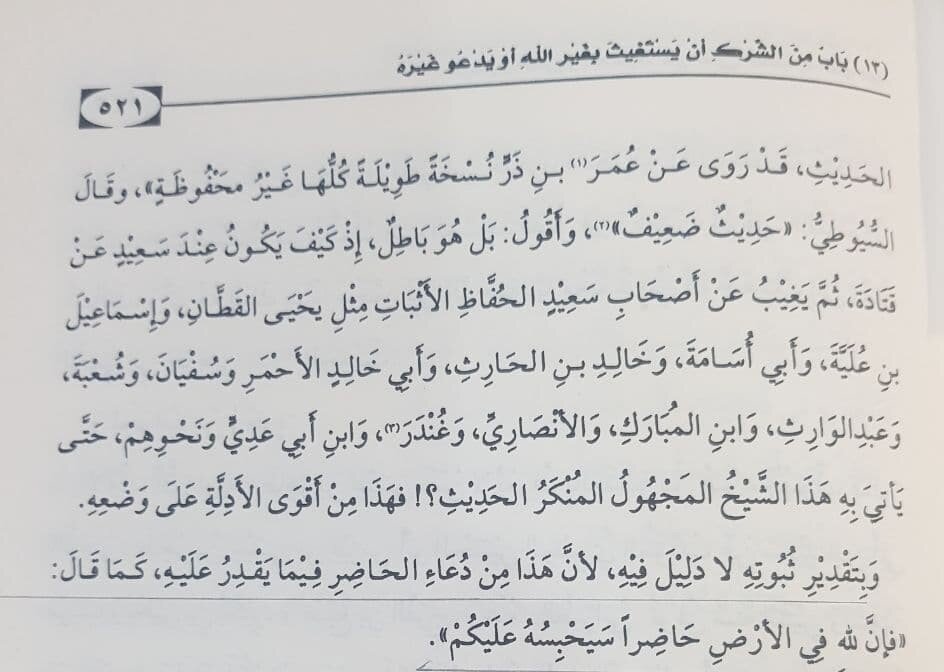 (١٣) بَابٌ مِنَ الشِّرْكِ أَنْ يَسْتَغِيثَ بِغَيْرِ اللهِ أَوْ يَدْعُوَ غَيْرَهُ
٥٢١
الحَدِيْثِ، قَدْ رَوَى عَنْ عُمَرَ(١) بنِ ذَرٍّ نُسْخَةً طَوِيْلَةً كُلُّهَا غَيْرُ مَحْفُوظَةٍ»، وقَالَ
السُّيُوطِيُّ: «حَدِيْثٌ ضَعِيْفٌ»(٢)، وَأَقُولُ: بَلْ هُوَ بَاطِلٌ، إِذْ كَيْفَ يَكُونُ عِنْدَ سَعِيْدٍ عَنْ
قَتَادَةَ، ثُمَّ يَغِيْبُ عَنْ أَصْحَابِ سَعِيْدٍ الحُفَّاظِ الأَثْبَاتِ مِثْلِ يَحْيَى القَطَّانِ، وَإِسْمَاعِيْلَ
بنِ عُلَيَّةَ، وَأَبِي أُسَامَةَ، وَخَالِدِ بنِ الحَارِثِ، وَأَبِي خَالِدٍ الأَحْمَرِ وَسُفْيَانَ، وَشُعْبَةَ،
وَعَبْدِالوَارِثِ، وَابنِ المُبَارَكِ، وَالأَنْصَارِيِّ، وَغُنْدَرَ(٣)، وَابنِ أَبِي عَدِيٍّ وَنَحْوِهِمْ، حَتَّى
يَأتِيَ بِهِ هَذَا الشَّيْخُ المَجْهُولُ المُنْكَرُ الحَدِيْثِ؟! فهَذَا مِنْ أَقْوَى الأَدِلَّةِ عَلَى وَضْعِهِ.
وَبِتَقْدِيْرِ ثُبُوتِهِ لا دَلِيْلَ فِيْهِ، لأَنَّ هَذَا مِنْ دُعَاءِ الحَاضِرِ فِيْمَا يَقْدِرُ عَلَيْهِ، كَمَا قَالَ:
«فإنَّ لله في الأَرْضِ حَاضِراً سَيَحْبِسُهُ عَلَيْكُمْ».